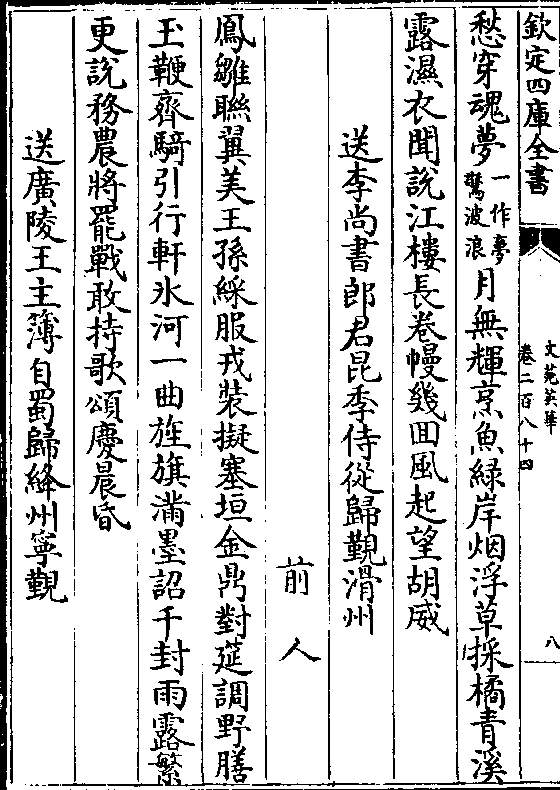 欽定四庫全書
文苑英華
卷二百八十四
八
愁穿魂夢一作夢驚波浪月無輝烹魚綠岸烟浮草採橘青溪
露濕衣聞說江樓長卷幔幾回風起望胡威
送李尚書郎君昆季侍從歸覲滑州
前人
鳳雛聯翼美王孫綵服戎裝擬塞垣金鼎對筵調野膳
玉鞭齊騎引行軒氷河一曲旌旗滿墨詔千封雨露繁
更說務農將罷戰敢持歌頌慶晨昏
送廣陵王主簿自蜀歸絳州寧覲